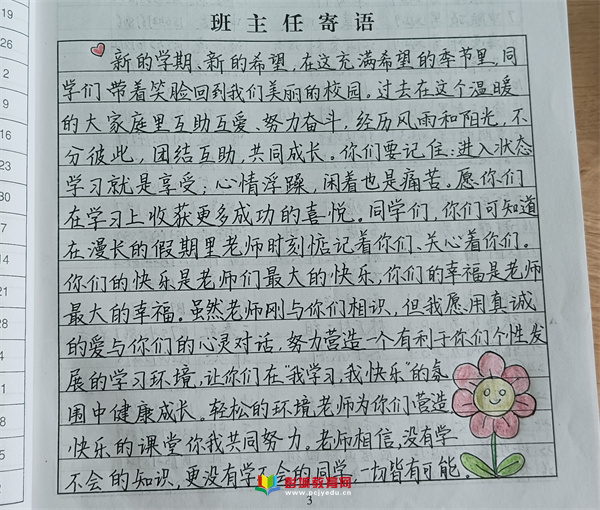 班主任寄语
新的学期、新的希望,在这充满希望的季节里,同
学们带着笑脸回到我们美丽的校园。过去在这个温暖
的大家庭里互助互爱、努力奋斗,经历风雨和阳光,不
分彼此,团结互助,共同成长。你们要记住:进入状态
学习就是享受;心情浮躁,闲着也是痛苦。愿你们
在学习上收获更多成功的喜悦。同学们,你们可知道
在漫长的假期里老师时刻惦记着你们、关心着你们。
你们的快乐是老师们最大的快乐,你们的幸福是老师
最大的幸福。虽然老师刚与你们相识,但我愿用真诚
的爱与你们的心灵对话,努力营造一个有利于你们个性发
展的学习环境,让你们在“我学习,我快乐”的氛
围中健康成长。轻松的环境老师为你们营造,
快乐的课堂你我共同努力。老师相信,没有学
不会的知识,更没有学不会的同学,一切皆有可能。
www.pcjyedu.cn
3
19
26
2
9
16
23
30
7
14
21
28